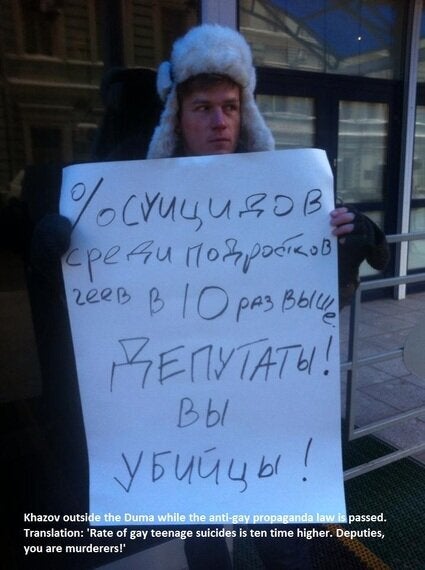 % суицидов
среди подростков
геев в 10 раз выше
ДЕПУТАТЫ!
ВЫ
УБИЙЦЫ!
Khazov outside the Duma while the anti-gay propaganda law is passed.
Translation: 'Rate of gay teenage suicides is ten time higher. Deputies,
you are murderers!'